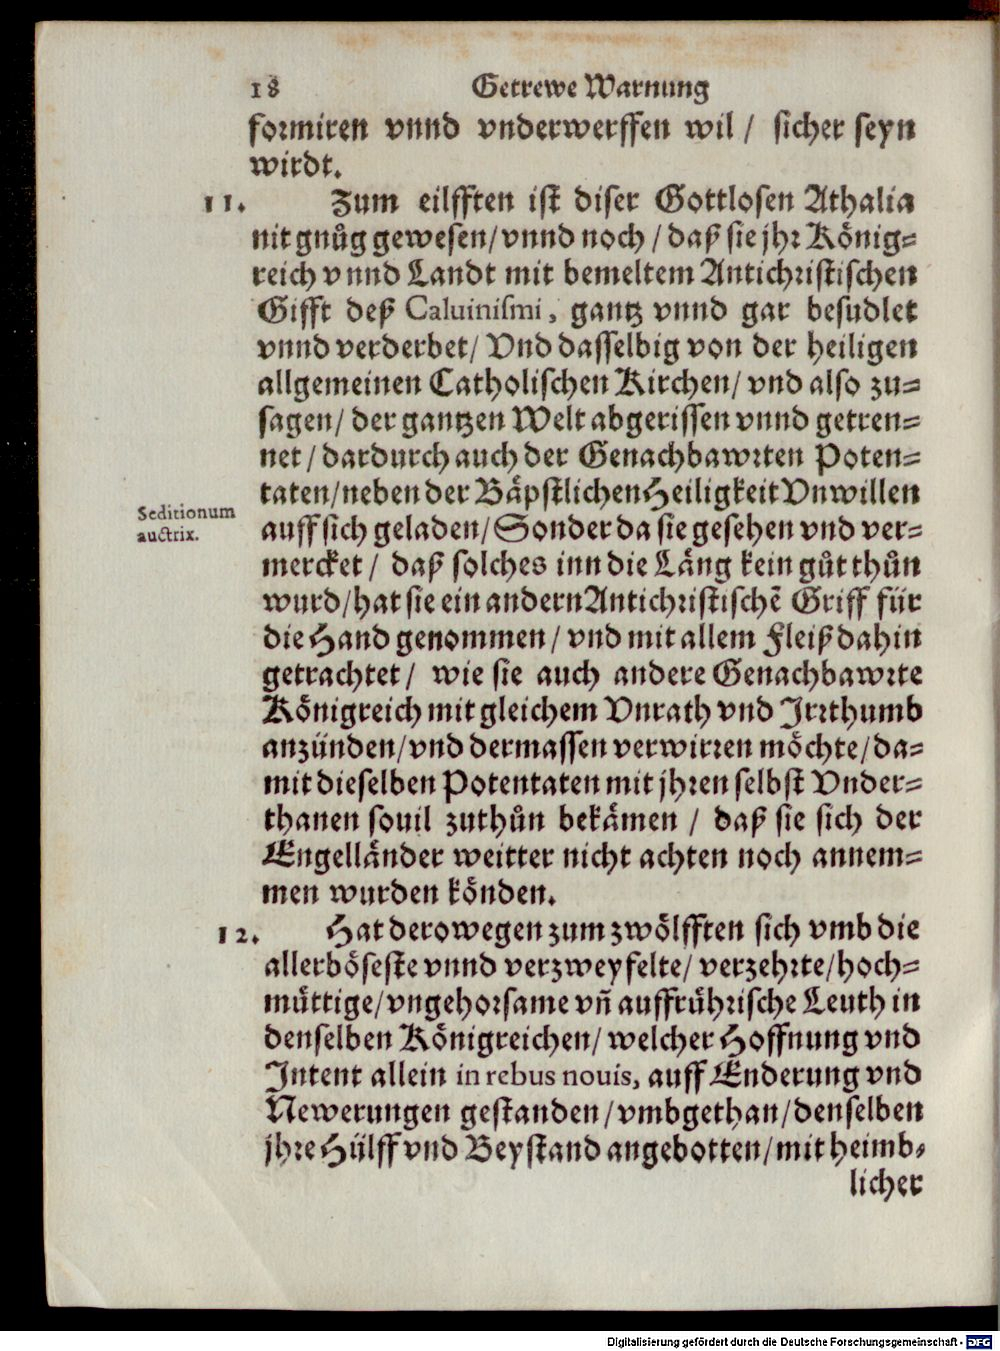 18 Getrewe Warnung
formiren vnnd vnderwerffen wil / sicher seyn
wirdt.
11. Zum eilfften ist diser Gottlosen Athalia
nit gnůg gewesen/ vnnd noch / daß sie jhr König=
reich vnnd Landt mit bemeltem Antichristischen
Gifft deß Caluinismi, gantz vnnd gar besudlet
vnnd verderbet/ Vnd dasselbig von der heiligen
allgemeinen Catholischen Kirchen/ vnd also zu=
sagen/ der gantzen Welt abgerissen vnnd getren=
net / dardurch auch der Genachbawrten Poten=
taten/ neben der Bäpstlichen Heiligkeit Vnwillen
Seditionum
auctrix.
auff sich geladen/ Sonder da sie gesehen vnd ver=
mercket / daß solches inn die Läng kein gůt thůn
wurd/ hat sie ein andern Antichristischẽ Griff für
die Hand genommen / vnd mit allem Fleiß dahin
getrachtet / wie sie auch andere Genachbawrte
Königreich mit gleichem Vnrath vnd Irrthumb
anzünden/ vnd dermassen verwirren möchte/ da=
mit dieselben Potentaten mit jhren selbst Vnder=
thanen souil zuthůn bekämen / daß sie sich der
Engelländer weitter nicht achten noch annem=
men wurden könden.
12. Hat derowegen zum zwölfften sich vmb die
allerböseste vnnd verzweyfelte/ verzehrte/ hoch=
můttige/ vngehorsame vñ auffrührische Leuth in
denselben Königreichen/ welcher Hoffnung vnd
Intent allein in rebus nouis, auff Enderung vnd
Newerungen gestanden / vmbgethan/ denselben
jhre Hülff vnd Beystand angebotten/ mit heimb=
licher
Digitalisierung gefördert durch die Deutsche Forschungsgemeinschaft - DFG